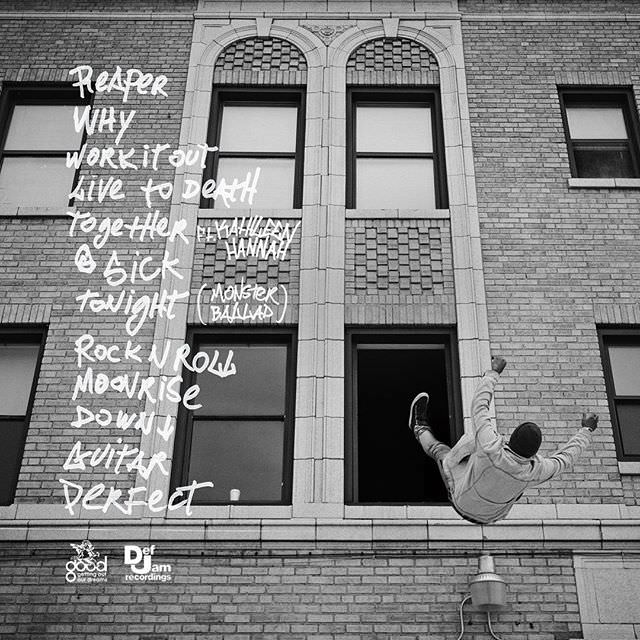 REAPER
WHY
WORK IT OUT
LIVE TO DEATH
TOGETHER FT. KATHLEEN HANNAH
@ SICK
TONIGHT (MONSTER BALLAD)
ROCK N ROLL
MOONRISE
DOWN ↓
GUITAR
PERFECT
good
getting out
our dreams
Def
Jam
recordings